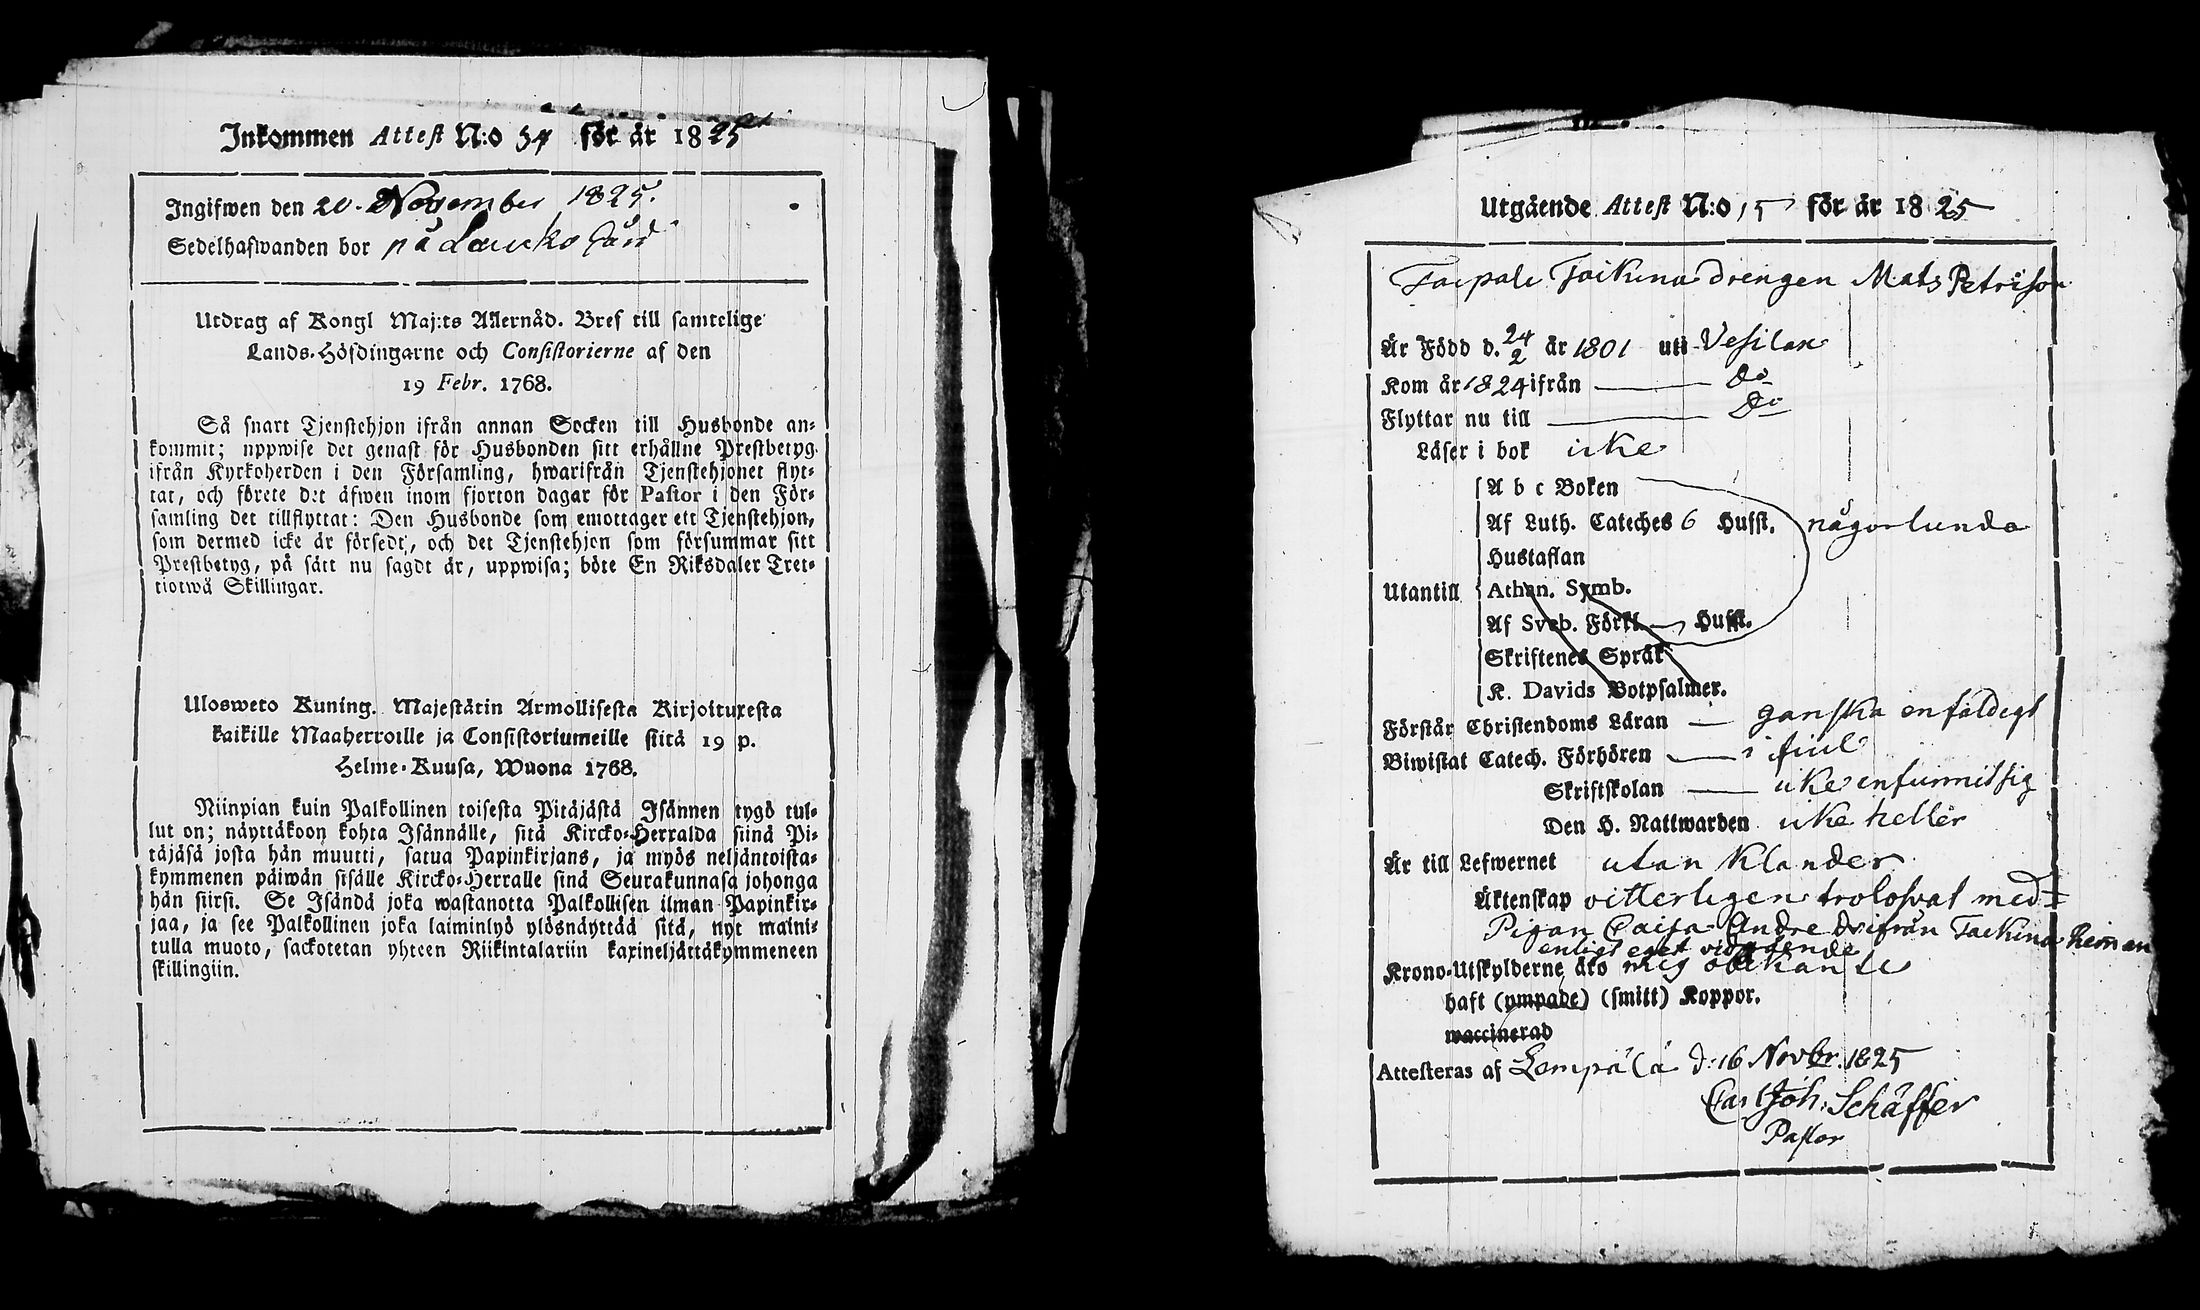 Inkommen Attest N:o 54 för år 1825
Ingifwen den 20. November 1825.
Sedelhafwanden bor på Laukko Gård
Utdrag af Kongl Maj:ts Allernåd. Bref till samtelige
Lands-Höfdingarne och Consistorierne af den
19 Febr. 1768.
Så snart Tjenstehjon ifrån annan Socken till Husbonde an-
kommit; uppwise det genast för Husbonden sitt erhållne Prestbetyg
ifrån Kyrkoherden i den Församling, hwarifrån Tjenstehjonet flyt-
tat, och förete det äfwen inom fjorton dagar för Pastor i den För-
samling det tillflyttat: Den Husbonde som emottager ett Tjenstehjon,
som dermed icke är försedt, och det Tjenstehjon som försummar sitt
Prestbetyg, på sätt nu sagdt är, uppwisa; böte En Riksdaler Tret-
tiotwå Skillingar.
Ulosweto Kuning. Majestätin Armollisesta Kirjoituxesta
kaikille Maaherroille ja Consistoriumeille siitä 19 p.
Helme-Kuusa, Wuona 1768.
Niinpian kuin Palkollinen toisesta Pitäjästä Isännen tygö tul-
lut on; näyttäkoon kohta Isännälle, sitä Kircko-Herralda siinä Pi-
täjäsä josta hän muutti, satua Papinkirjans, ja myös neljäntoista-
kymmenen päiwän sisälle Kircko-Herralle sinä Seurakunnasa johonga
hän siirsi. Se Isändä joka wastanotta Palkollisen ilman Papinkir-
jaa, ja see Palkollinen joka laiminlyö ylösnäyttää sitä, nyt maini-
tulla muoto, sackotetan yhteen Riikintalariin kaxineljättäkymmeneen
skillingiin.
Utgående Attest N:o 15 för år 1825
Taipale Taikina Drengen Mats Petrisson
Är Född d. 24/2 år 1801 uti Vesilax
Kom år 1824 ifrån — Do
Flyttar nu till — Do
Läser i bok icke
A b c Boken
Af Luth. Cateches 6 Hufst. någorlunda
Hustaflan
Utantill Athan. Symb.
Af Sveb. Förkl. — Hufst.
Skriftenes Språk
K. Davids Botpsalmer.
Förstår Christendoms Läran — ganska enfaldigt
Biwistat Catech. Förhören — i fiul
Skriftskolan — icke enfunnit sig
Den H. Nattwarden icke heller
Är till Lefwernet utan klander
Äktenskap vitterligen trolofvat med
Pigan Caisa Andre Dr ifrån Taikina heman
enligt eget vidgående
Krono-Utskylderne äro mig obekante
haft (ympade) (smitt) Koppor.
waccinerad
Attesteras af Lempälä d: 16 Novbr. 1825
Carl Joh: Schäffer
Pastor